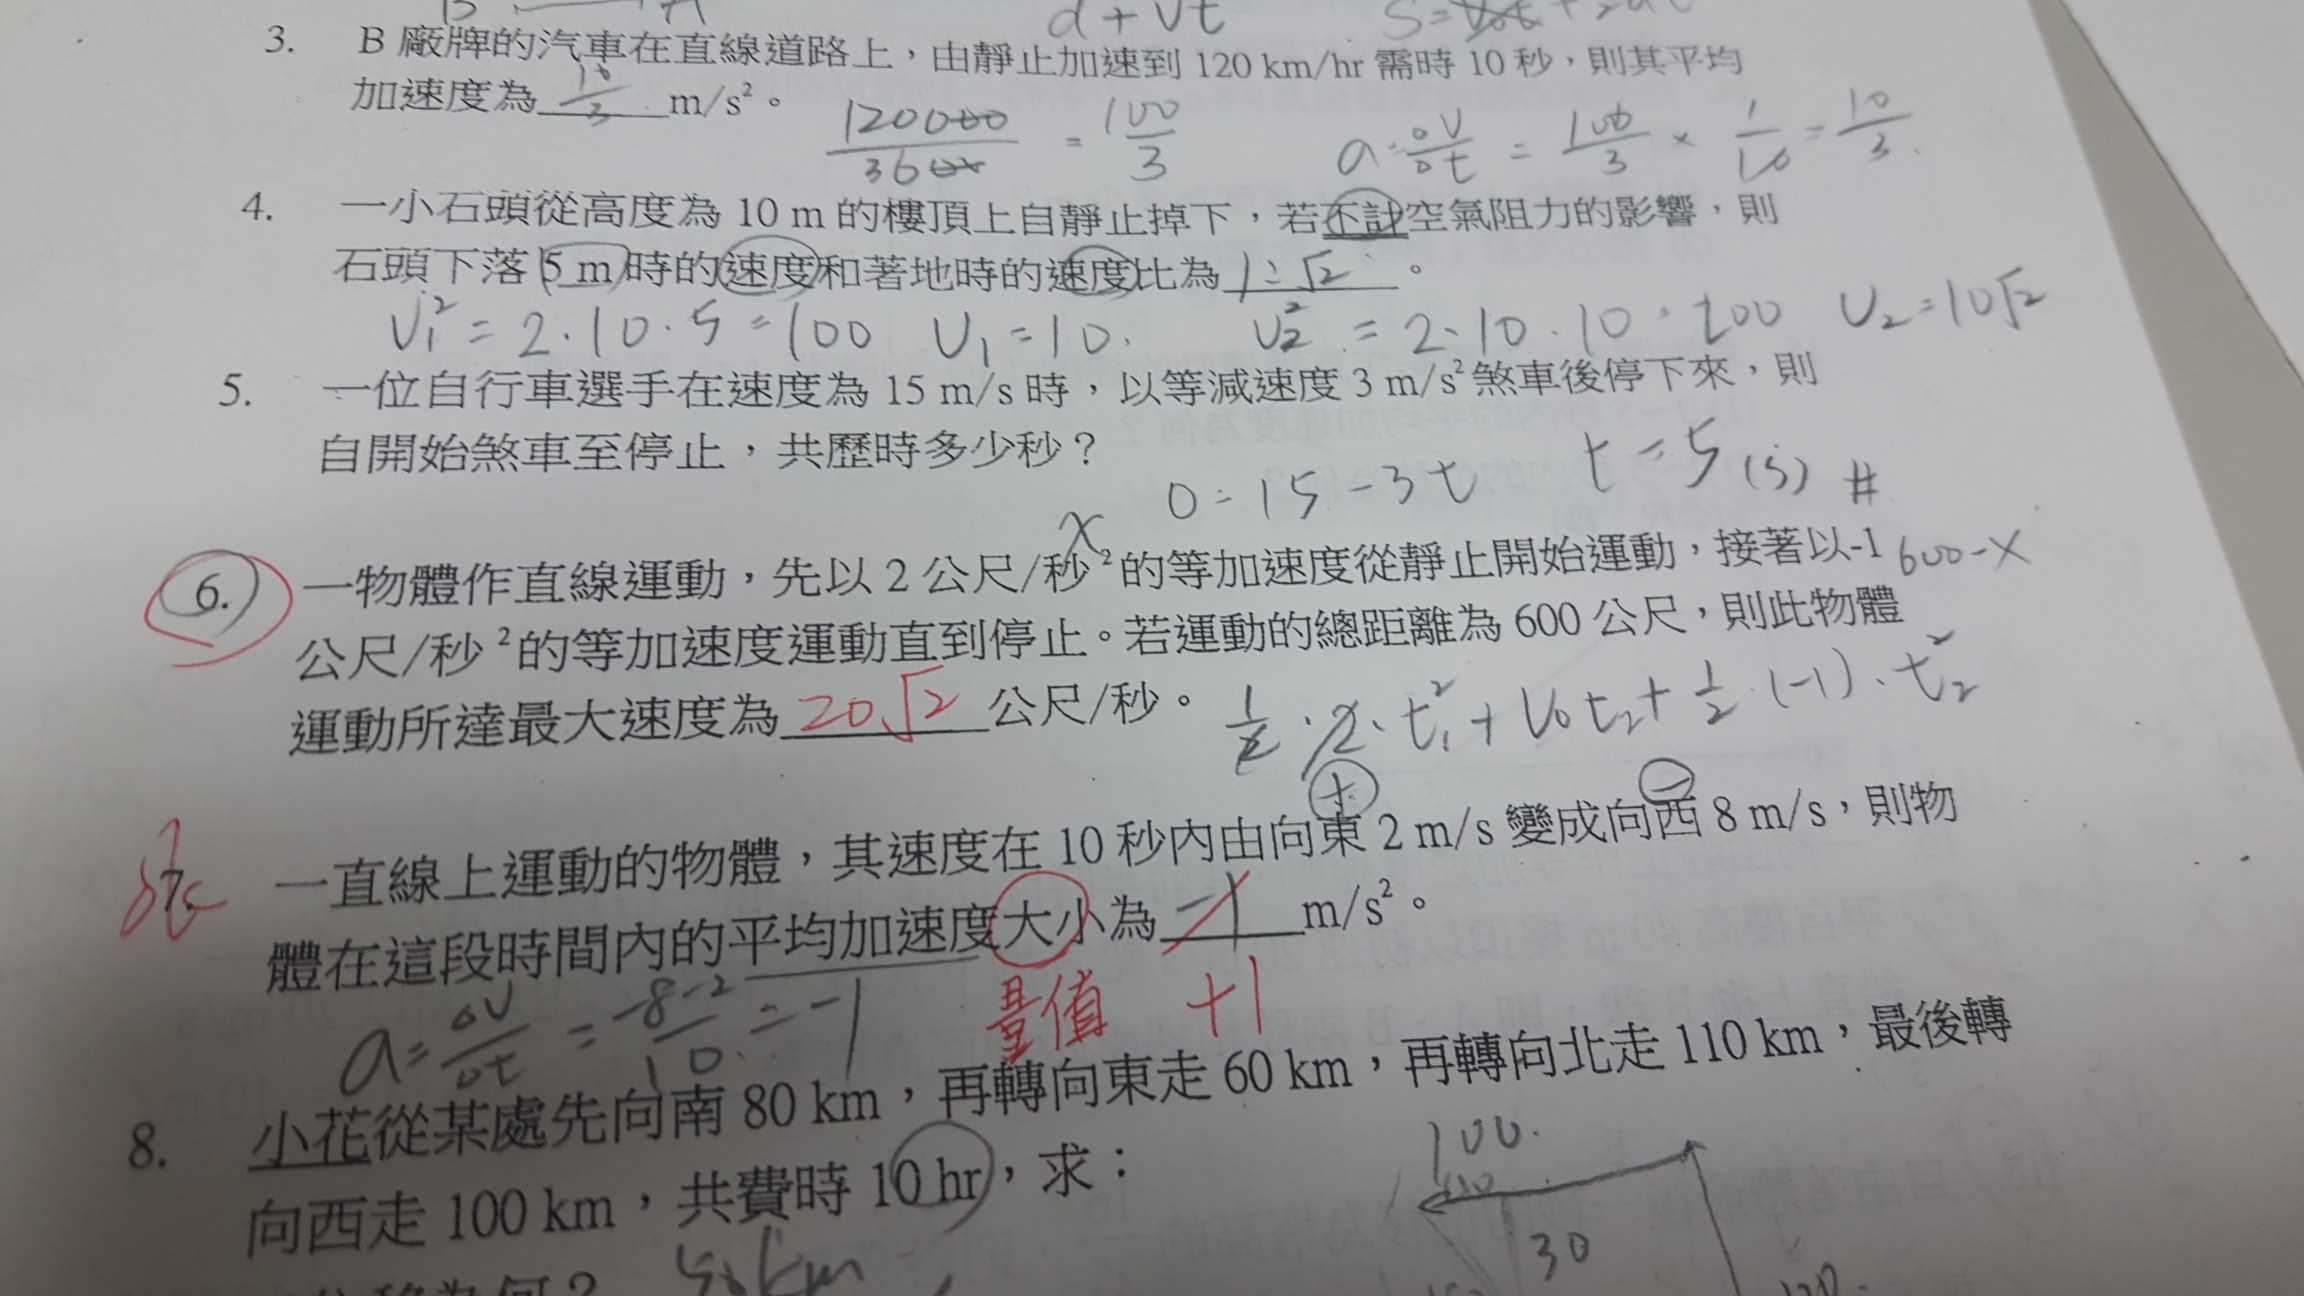 d + Vt
3. B 廠牌的汽車在直線道路上，由靜止加速到 120 km/hr 需時 10 秒，則其平均
加速度為 10/3 m/s²。
120000/3600 = 100/3 a = ΔV/Δt = 100/3 × 1/10 = 10/3
4. 一小石頭從高度為 10 m 的樓頂上自靜止掉下，若不計空氣阻力的影響，則
石頭下落 5 m 時的速度和著地時的速度比為 1：√2 。
V₁² = 2·10·5 = 100 V₁ = 10. V₂² = 2·10·10 = 200 V₂ = 10√2
5. 一位自行車選手在速度為 15 m/s 時，以等減速度 3 m/s² 煞車後停下來，則
自開始煞車至停止，共歷時多少秒？
0 = 15 - 3t t = 5 (s) #
x
6. 一物體作直線運動，先以 2 公尺/秒²的等加速度從靜止開始運動，接著以-1 600-x
公尺/秒²的等加速度運動直到停止。若運動的總距離為 600 公尺，則此物體
運動所達最大速度為 20√2 公尺/秒。
1/2·2·t₁² + V₀t₂ + 1/2·(-1)·t₂²
+ −
7. 一直線上運動的物體，其速度在 10 秒內由向東 2 m/s 變成向西 8 m/s，則物
體在這段時間內的平均加速度大小為 -1 m/s²。
量值 +1
a = ΔV/Δt = -8-2/10 = -1
8. 小花從某處先向南 80 km，再轉向東走 60 km，再轉向北走 110 km，最後轉
向西走 100 km，共費時 10 hr，求：
100.
30